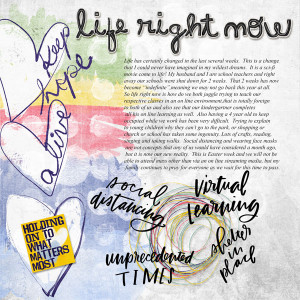 life right now
keep
hope
alive
Life has certainly changed in the last several weeks. This is a change
that I could never have imagined in my wildest dreams. It is a sci-fi
movie come to life! My husband and I are school teachers and right
away our schools were shut down for 2 weeks. That 2 weeks has now
become "indefinite" meaning we may not go back this year at all.
So life right now is how do we both juggle trying to teach our
respective classes in an on line environment that is totally foreign
to both of us and also see that our kindergartner completes
all his on line learning as well. Also having a 2 year old to keep
occupied while we work has been very difficult. Trying to explain
to young children why they can't go to the park, or shopping or
church or school has taken some ingenuity. Lots of crafts, reading,
singing and taking walks. Social distancing and wearing face masks
are not concepts that any of us would have considered a month ago,
but it is now our new reality. This is Easter week and we will not be
able to attend mass other than via an on line streaming media, but my
family continues to pray for everyone as we wait for this time to pass.
social
distancing
virtual
learning
HOLDING
ON TO
WHAT
MATTERS
MOST
unprecedented
TIMES
shelter
in
place